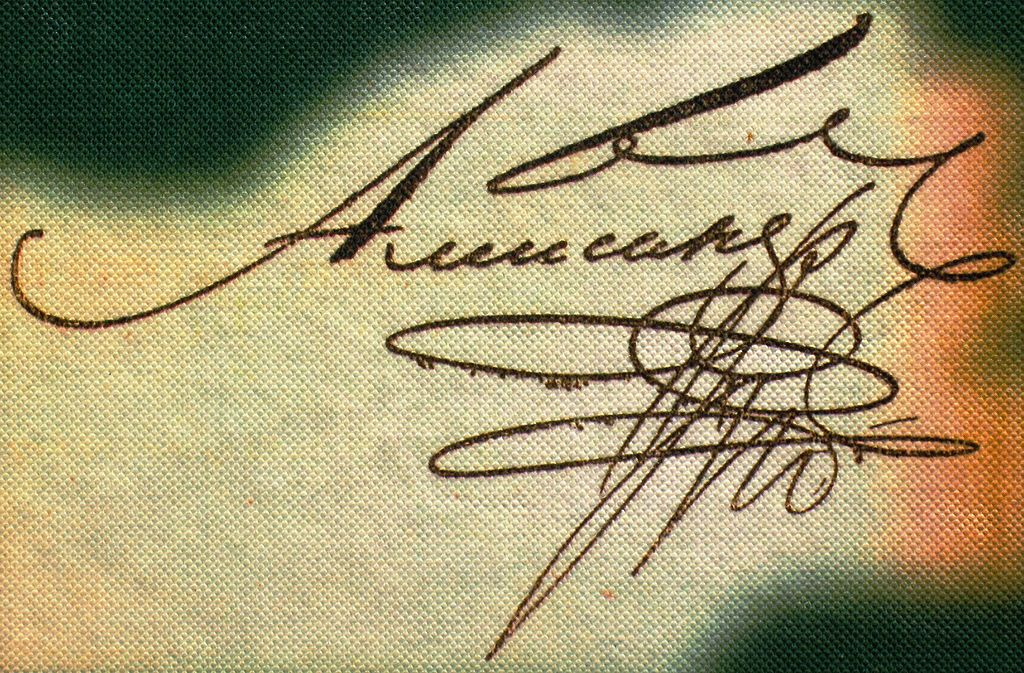 Александр